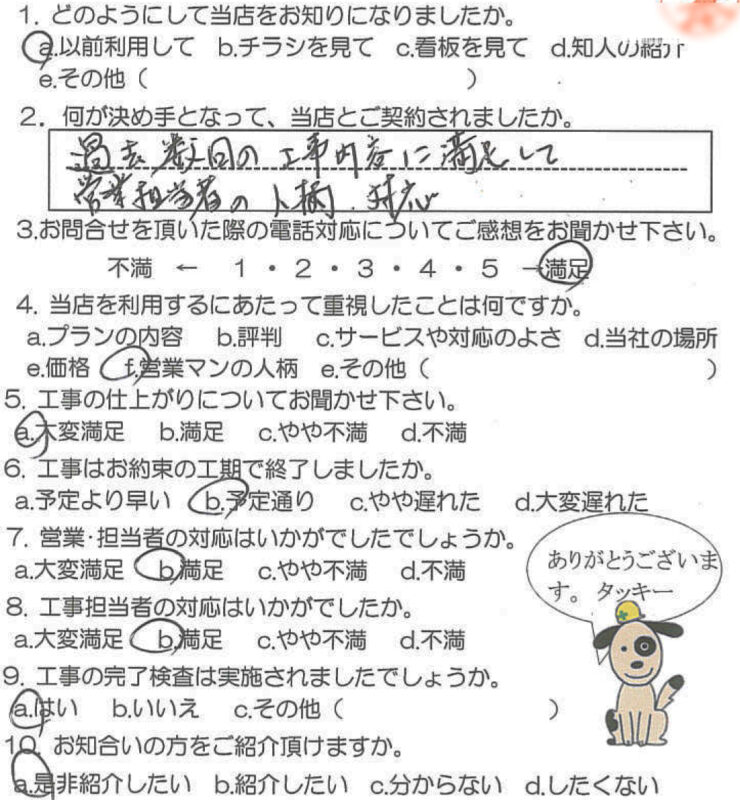 1. どのようにして当店をお知りになりましたか。
a.以前利用して b.チラシを見て c.看板を見て d.知人の紹介
e.その他（ ）
2. 何が決め手となって、当店とご契約されましたか。
過去数回の工事内容に満足して
営業担当者の人柄、対応
3.お問合せを頂いた際の電話対応についてご感想をお聞かせ下さい。
不満 ← 1・2・3・4・5 →満足
4. 当店を利用するにあたって重視したことは何ですか。
a.プランの内容 b.評判 c.サービスや対応のよさ d.当社の場所
e.価格 f.営業マンの人柄 e.その他（ ）
5. 工事の仕上がりについてお聞かせ下さい。
a.大変満足 b.満足 c.やや不満 d.不満
6. 工事はお約束の工期で終了しましたか。
a.予定より早い b.予定通り c.やや遅れた d.大変遅れた
7. 営業・担当者の対応はいかがでしたでしょうか。
a.大変満足 b.満足 c.やや不満 d.不満
8. 工事担当者の対応はいかがでしたか。
a.大変満足 b.満足 c.やや不満 d.不満
ありがとうございま
す。 タッキー
9. 工事の完了検査は実施されましたでしょうか。
a.はい b.いいえ c.その他（ ）
10. お知合いの方をご紹介頂けますか。
a.是非紹介したい b.紹介したい c.分からない d.したくない